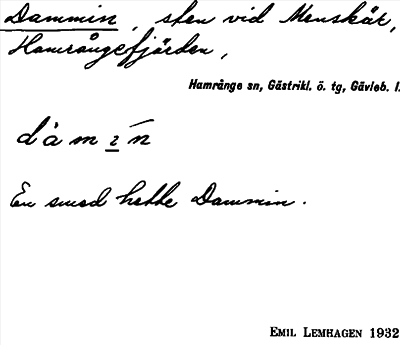 Dammin, sten vid Menskär,
Hamrångefjärden,
Hamrånge sn, Gästrikl. ö. tg, Gävleb. l.
dàmı̲ń
En smed hette Dammin.
EMIL LEMHAGEN 1932